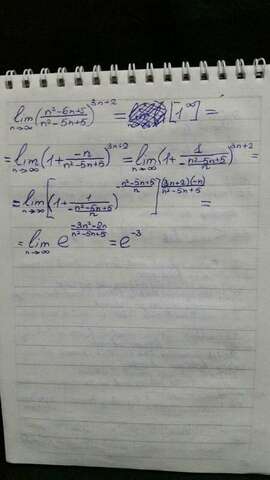 lim n→∞ ((n²-6n+5)/(n²-5n+5))^(3n+2) = [1^∞] =
= lim n→∞ (1+(-n)/(n²-5n+5))^(3n+2) = lim n→∞ (1+1/(-(n²-5n+5)/n))^(3n+2) =
= lim n→∞ [(1+1/(-(n²-5n+5)/n))^(-(n²-5n+5)/n)]^((3n+2)(-n)/(n²-5n+5)) =
= lim n→∞ e^((-3n²-2n)/(n²-5n+5)) = e^(-3)